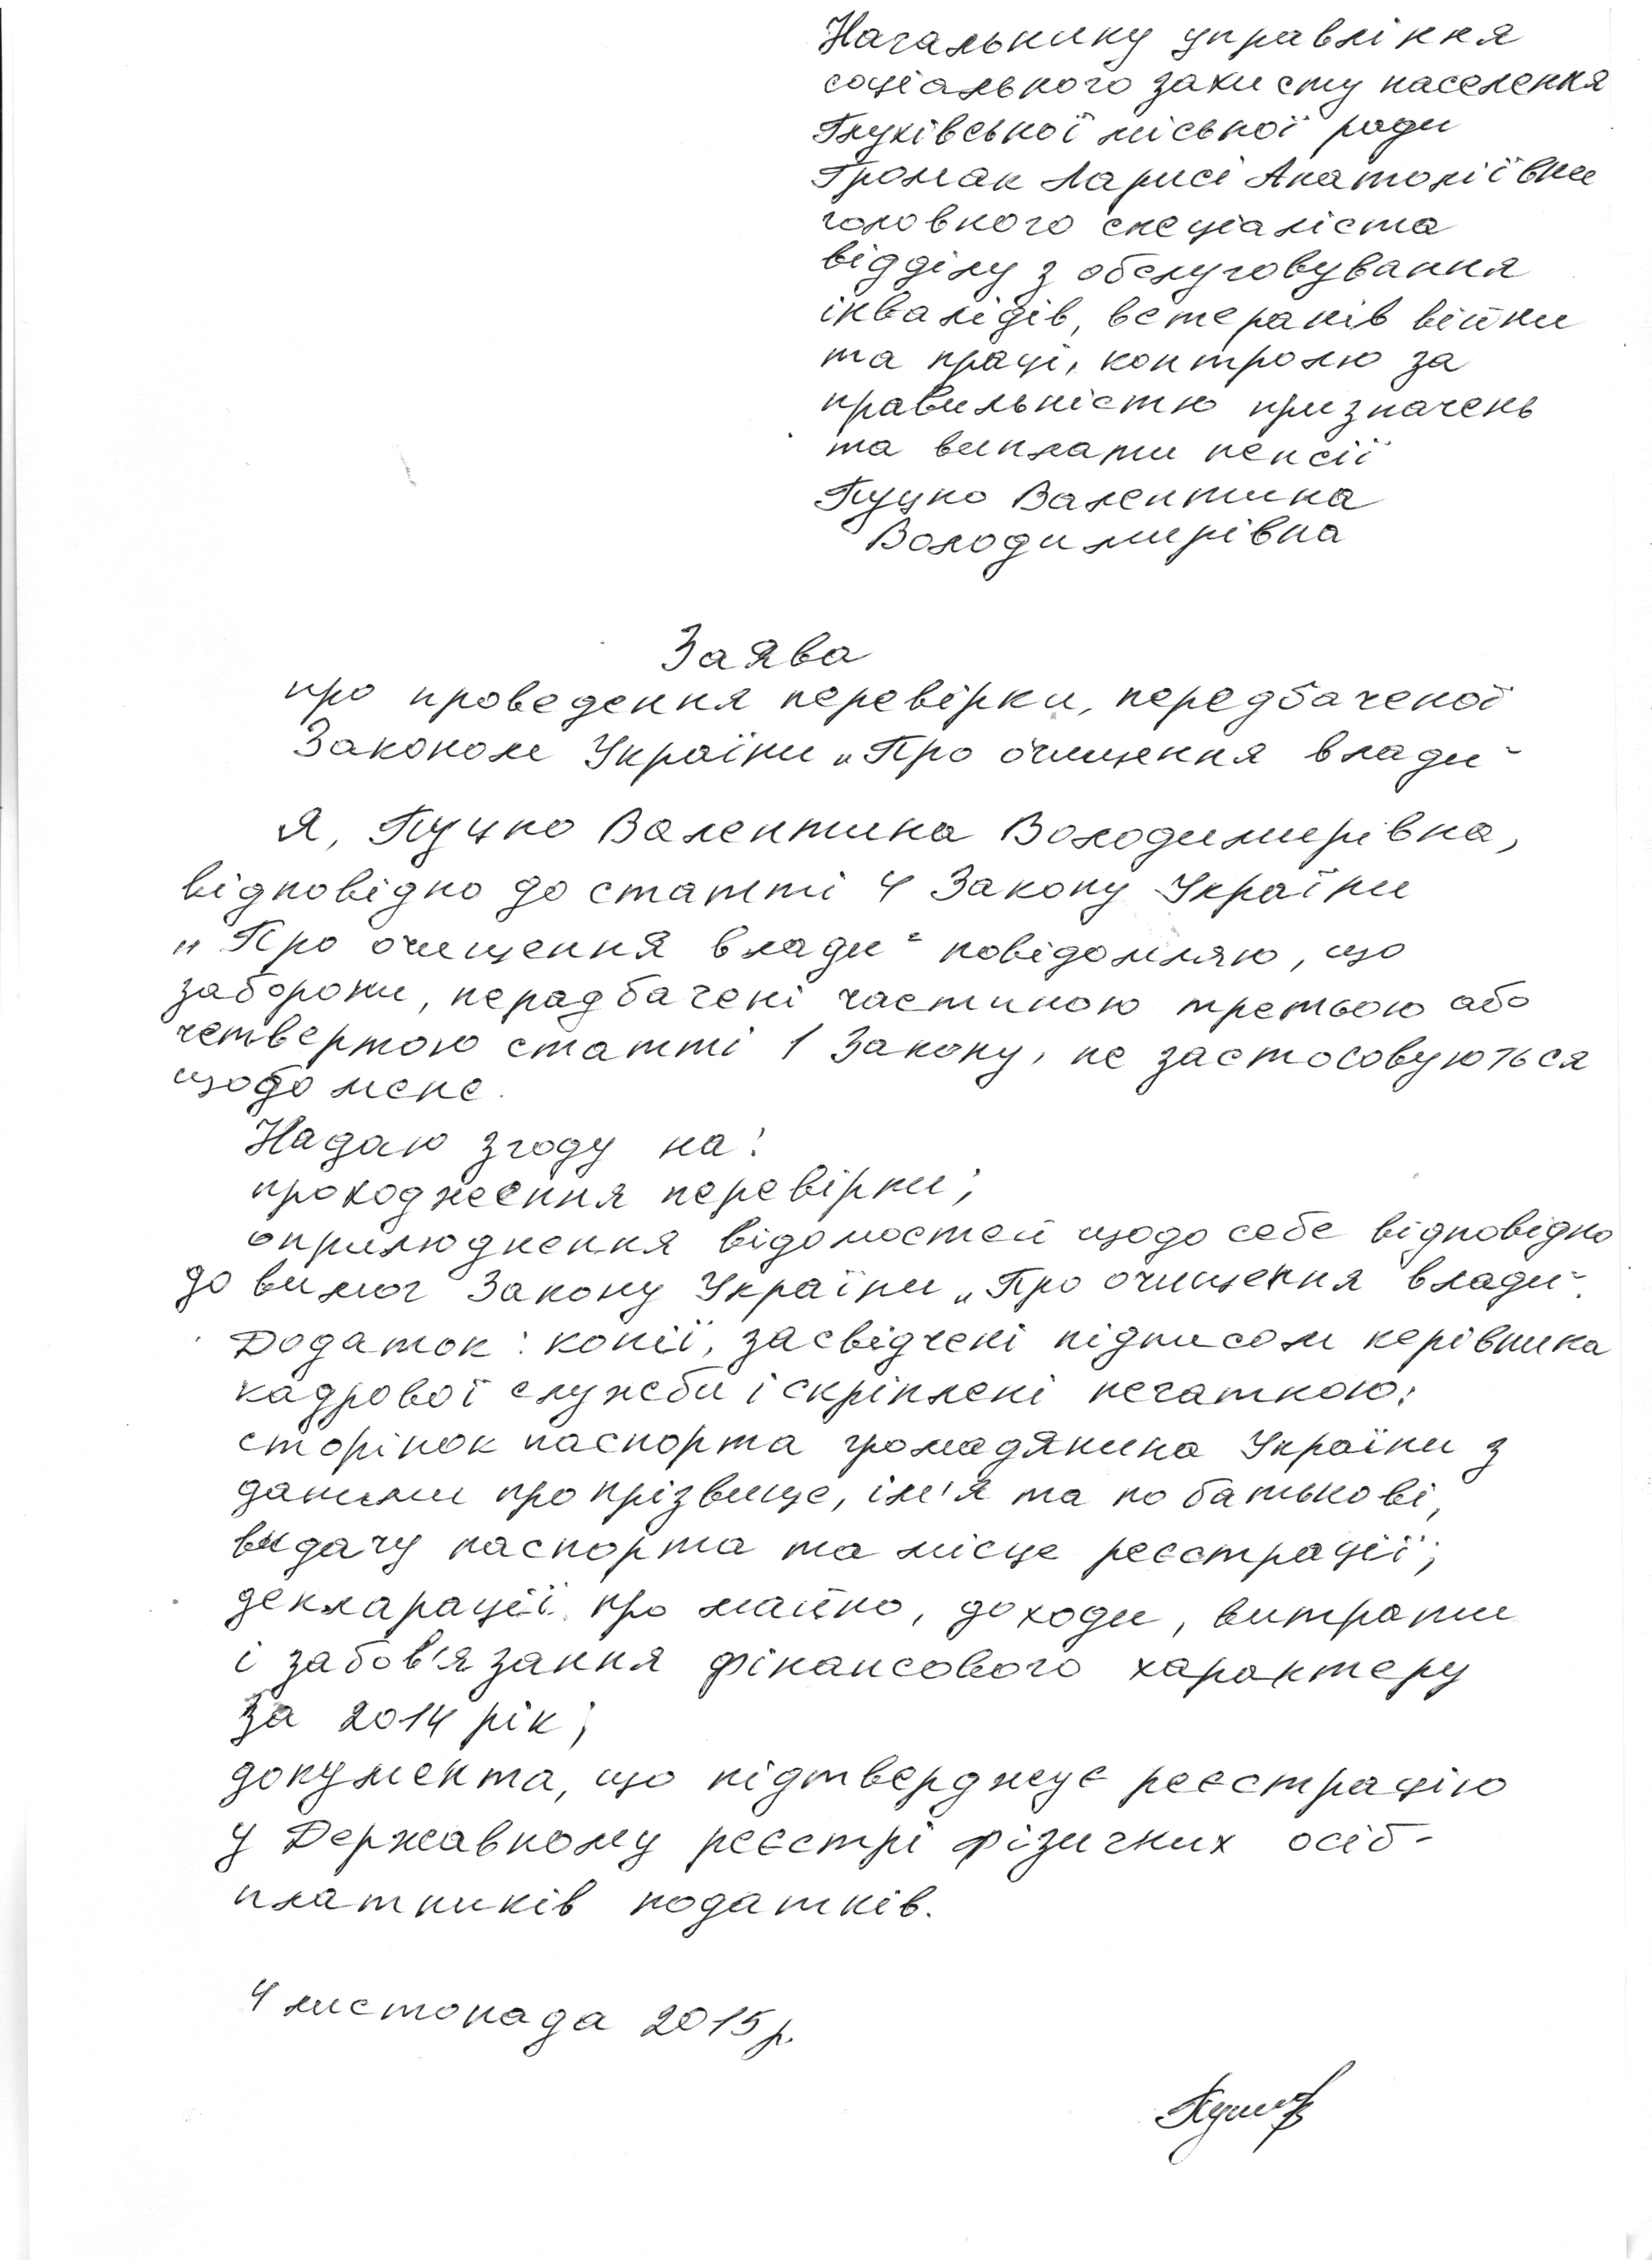 Начальнику управління
соціального захисту населення
Глухівської міської ради
Громак Ларисі Анатоліївни
головного спеціаліста
відділу з обслуговування
інвалідів, ветеранів війни
та праці, контролю за
правильністю призначень
та виплати пенсії
Пуцко Валентина
Володимирівна
Заява
про проведення перевірки, передбаченої
Законом України „Про очищення влади"
Я, Пуцко Валентина Володимирівна,
відповідно до статті 4 Закону України
„Про очищення влади" повідомляю, що
заборони, перадбачені частиною третьою або
четвертою статті 1 Закону, не застосовуються
щодо мене.
Надаю згоду на:
проходження перевірки;
оприлюднення відомостей щодо себе відповідно
до вимог Закону України „Про очищення влади".
Додаток: копії, засвідчені підписом керівника
кадрової служби і скріплені печаткою:
сторінок паспорта громадянина України з
даними про прізвище, ім'я та по батькові,
видачу паспорта та місце реєстрації;
декларації про майно, доходи, витрати
і забов'язання фінансового характеру
за 2014 рік;
документа, що підтверджує реєстрацію
у Державному реєстрі фізичних осіб-
платників податків.
4 листопада 2015 р.